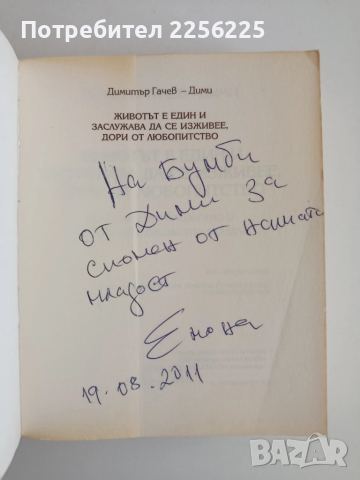 Потребител 2253256
Димитър Гачев – Дими
ЖИВОТЪТ Е ЕДИН И
ЗАСЛУЖАВА ДА СЕ ИЗЖИВЕЕ,
ДОРИ ОТ ЛЮБОПИТСТВО
На Бумби
от Дими за
спомен от нашата
младост
19.08.2011
BAZAR